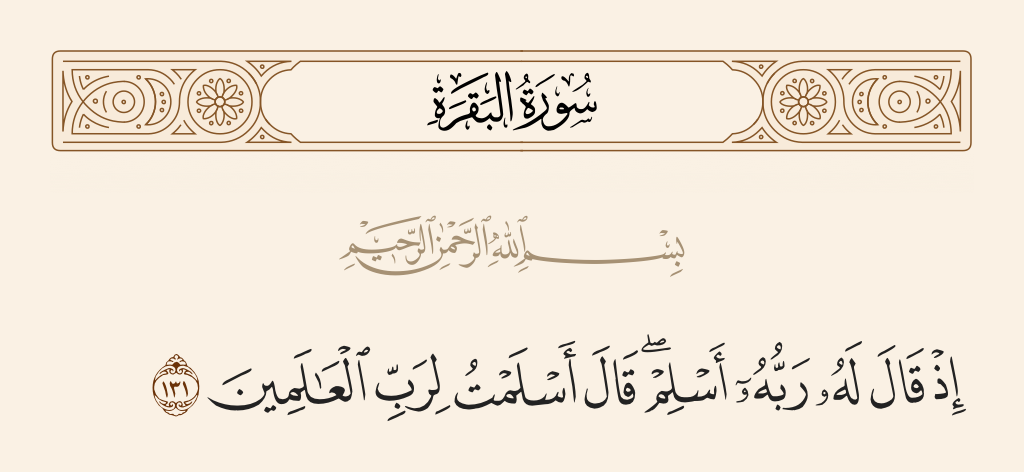 سُورَةُ البَقَرَةِ
بِسْمِ ٱللَّهِ ٱلرَّحْمَٰنِ ٱلرَّحِيمِ
إِذْ قَالَ لَهُۥ رَبُّهُۥٓ أَسْلِمْ ۖ قَالَ أَسْلَمْتُ لِرَبِّ ٱلْعَـٰلَمِينَ ١٣١